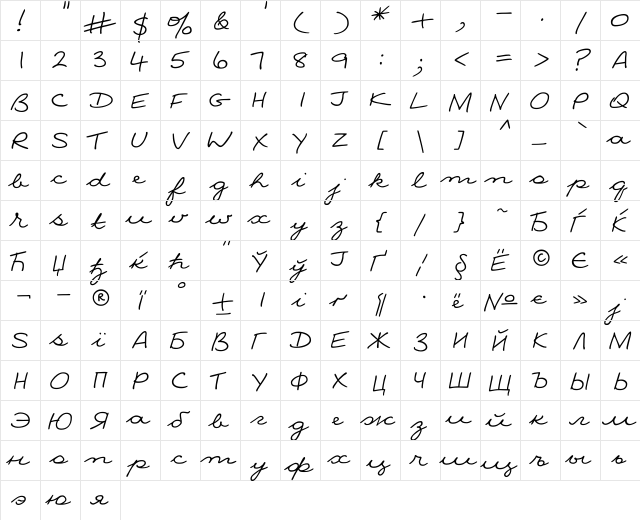 ! " # $ % & ' ( ) * + , - . / 0
1 2 3 4 5 6 7 8 9 : ; < = > ? A
B C D E F G H I J K L M N O P Q
R S T U V W X Y Z [ \ ] ^ _ ` a
b c d e f g h i j k l m n o p q
r s t u v w x y z { / } ~ Ђ Ѓ Ќ
Ћ Џ ђ ќ ћ " Ў ў J Ґ ¦ § Ё © Є «
¬ - ® Ї ° ± І і ґ ¶ · ё № є » ј
Ѕ ѕ ї А Б В Г Д Е Ж З И Й К Л М
Н О П Р С Т У Ф Х Ц Ч Ш Щ Ъ Ы Ь
Э Ю Я а б в г д е ж з и й к л м
н о п р с т у ф х ц ч ш щ ъ ы ь
э ю я